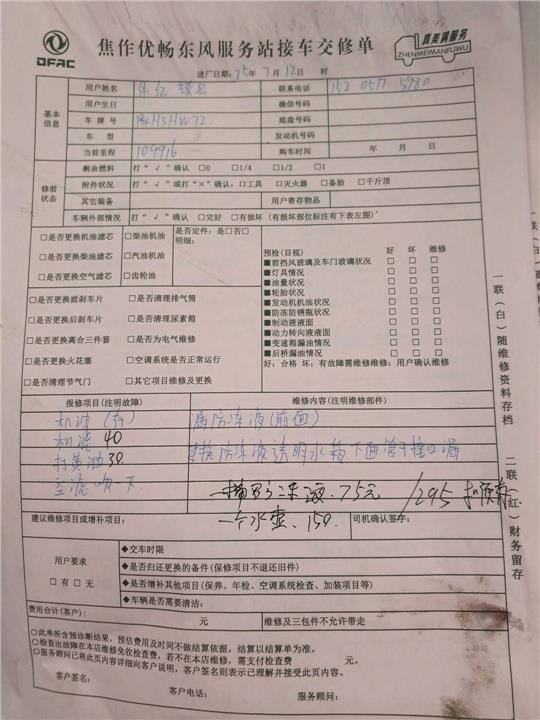 DFAC
焦作优畅东风服务站接车交修单
真美满服务
ZHENMEIMANFUWU
进厂日期：25年7月12日 时
基本信息
用户姓名 联系电话 152
用户生日 微信号码
车牌号 底盘号码
车型 发动机号码
当前里程 109916 购车时间 年 月 日
修前状态
剩余燃料 打“√”确认 □0 □1/4 □1/2 □1
附件状况 打“√”或打“×”确认：□工具 □灭火器 □备胎 □千斤顶
其它装备 用户寄存物品
车辆外部情况 打“√”确认 □完好 □有损坏（有损坏部位标注有下表左图）
□是否更换机油滤芯 □柴油机油 是否定件：是□否□
明细：
□是否更换柴油滤芯 □汽油机油
□是否更换空气滤芯 □齿轮油
□是否更换前刹车片 □是否清理排气筒
□是否更换后刹车片 □是否清理尿素箱
□是否更换离合三件套 □是否为电气维修
□是否更换火花塞 □空调系统是否正常运行
□是否清理节气门 □其它项目维修及更换
预检(目视) 好 坏 维修
■前挡风玻璃及车门玻璃状况 □ □ □
■灯具情况 □ □ □
■油量状况 □ □ □
■轮胎状况 □ □ □
■发动机机油状况 □ □ □
■防冻防锈瓶状况 □ □ □
■制动液液面 □ □ □
■动力转向液液面 □ □ □
■变速箱漏油情况 □ □ □
■后桥漏油情况 □ □ □
好：合格 坏：有故障需维修维修：用户确认维修
报修项目(注明故障) 维修内容(注明维修部件)
漏防冻液(前面)
机滤 40
打黄油 30.
更换防冻液 水箱下面管
空滤吹一下
一桶 液.75元 /295
一个水壶.150.
建议维修项目或增补项目： 司机确认签字：
用户要求
□有 □无
◆交车时限
◆是否归还更换的备件（保修项目不退还旧件）
◆是否增补其他项目（保养、年检、空调系统检查、加装项目等）
◆车辆是否需要清洁：
费用合计(客户)： 元 维修及三包件不允许带走
○此单所含预诊断结果，预估费用及时间不做结算依据，结算以结算单为准。
○检查出故障在本店维修免收检查费，若不在本店维修，需支付检查费 元。
○服务顾问已将此页内容详细向客户说明，客户签名则表示已理解并接受此页内容。
客户签名： 客户电话： 服务顾问：
一联（白）随维修资料存档
二联（红）财务留存